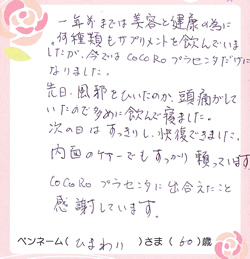 一年前までは美容と健康の為に
何種類もサプリメントを飲んでいま
したが、今ではCoCoRoプラセンタだけに
なりました。
先日、風邪をひいたのか、頭痛がして
いたので多めに飲んで寝ました。
次の日はすっきりし、快復できました。
内面のケアーでもすっかり頼っています。
CoCoRoプラセンタに出合えたこと
感謝しています。
ペンネーム(ひまわり)さま(60)歳